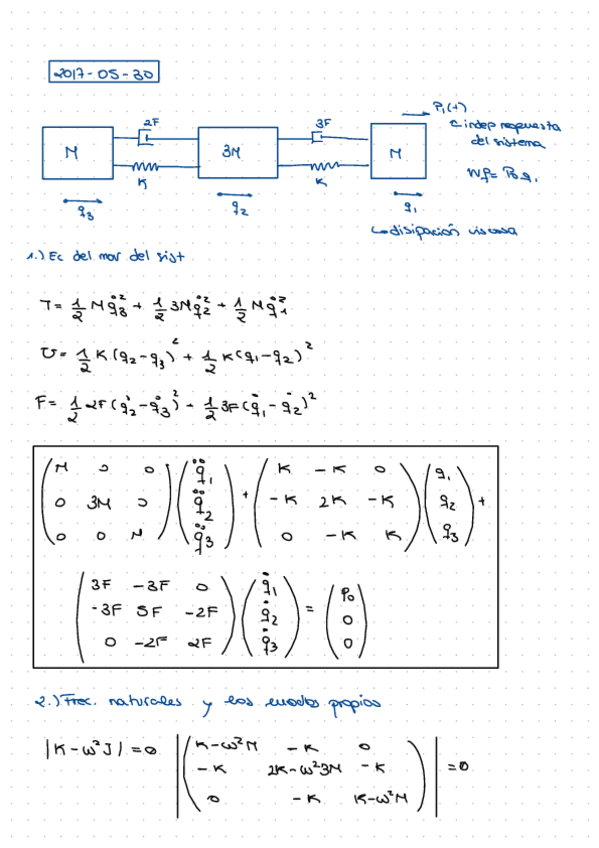 2017-05-30
2F 3F P₁(t)
↳ indep respuesta
del sistema
M 3M M
K K Wf = P₀q₁
q₃ q₂ q₁
↳ disipación viscosa
1.) Ec del mov del sist
T = 1/2 M q̇₃² + 1/2 3M q̇₂² + 1/2 M q̇₁²
U = 1/2 K (q₂-q₃)² + 1/2 K (q₁-q₂)²
F = 1/2 2F (q̇₂-q̇₃)² + 1/2 3F (q̇₁-q̇₂)²
M 0 0 q̈₁ K -K 0 q₁
0 3M 0 q̈₂ + -K 2K -K q₂ +
0 0 M q̈₃ 0 -K K q₃
3F -3F 0 q̇₁ P₀
-3F 5F -2F q̇₂ = 0
0 -2F 2F q̇₃ 0
2.) Frec. naturales y los modos propios
|K-ω²J| = 0
K-ω²M -K 0
-K 2K-ω²3M -K = 0
0 -K K-ω²M